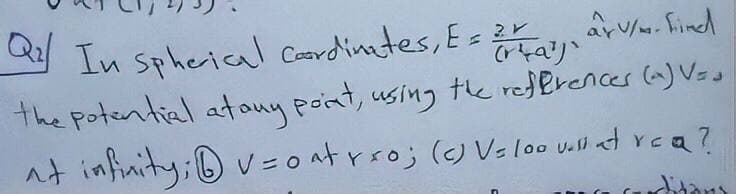 Q2/ In spherical Coordinates, E = 2r/(r²+a²)² âr V/m. Find
the potential at any point, using the references (a) V=0
at infinity; (b) V=0 at r=0; (c) V=100 volt at r=a?